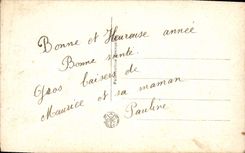 Bonne et Heureuse année
Bonne santé
Gros baisers de
Maurice et sa maman
Pauline